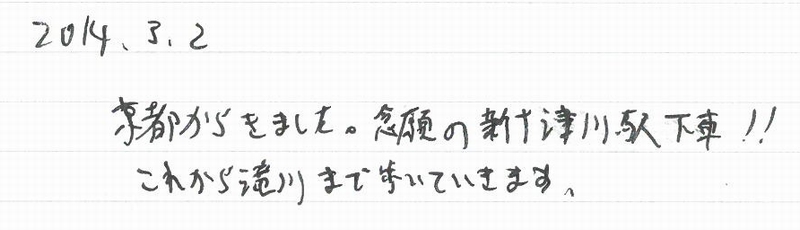 2014.3.2
京都からきました。念願の新十津川駅下車!!
これから滝川まで歩いていきます。